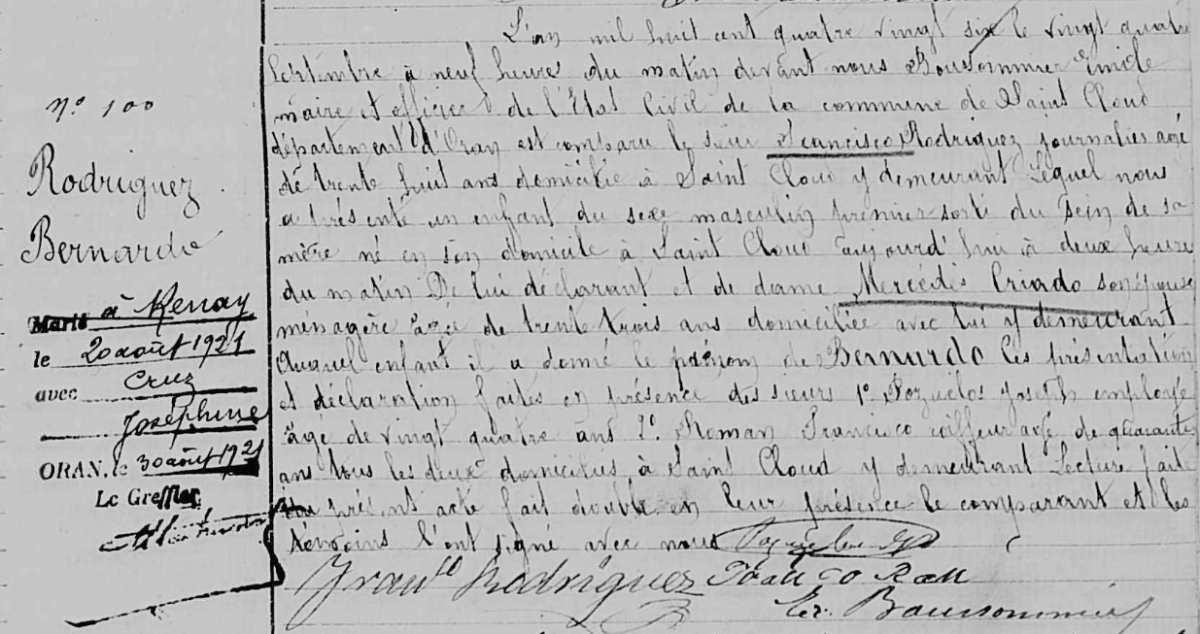 N° 100
Rodriguez
Bernardo
Marié à Renay
le 20 août 1921
avec Cruz
Joséphine
ORAN, le 30 août 1921
Le Greffier
L'an mil huit cent quatre vingt six le vingt quatre
Septembre à neuf heures du matin devant nous Boussommier Emile
maire et officier de l'Etat Civil de la commune de Saint Cloud
département d'Oran est comparu le sieur Francisco Rodriguez journalier agé
de trente huit ans domicilié à Saint Cloud y demeurant Lequel nous
a présenté un enfant du sexe masculin premier sorti du sein de sa
mère né en son domicile à Saint Cloud aujourd'hui à deux heures
du matin De lui déclarant et de dame Mercédès Criado son épouse
ménagère âgée de trente trois ans domiciliée avec lui y demeurant
Auquel enfant il a donné le prénom de Bernardo les présentation
et déclaration faites en présence des sieurs 1° Pozuelos Joseph employé
âgé de vingt quatre ans 2° Roman Francisco coiffeur agé de quarante
ans tous les deux domiciliés à Saint Cloud y demeurant Lecture faite
du présent acte fait double en leur présence le comparant et les
témoins l'ont signé avec nous
Franco Rodriguez Franco Roman
Boussommier